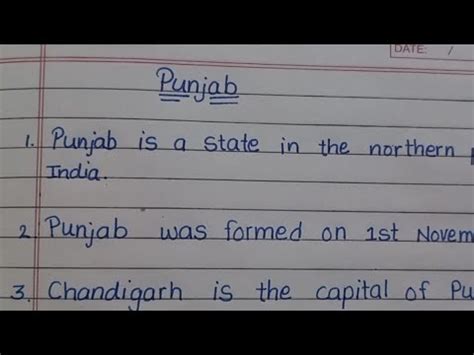 DATE: /
Punjab
1. Punjab is a state in the northern
India.
2. Punjab was formed on 1st Novem
3. Chandigarh is the capital of Pu